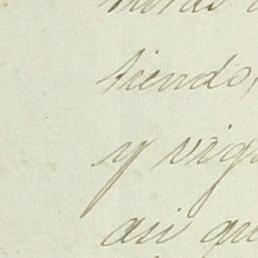 tiendo,
y vig
asi qu